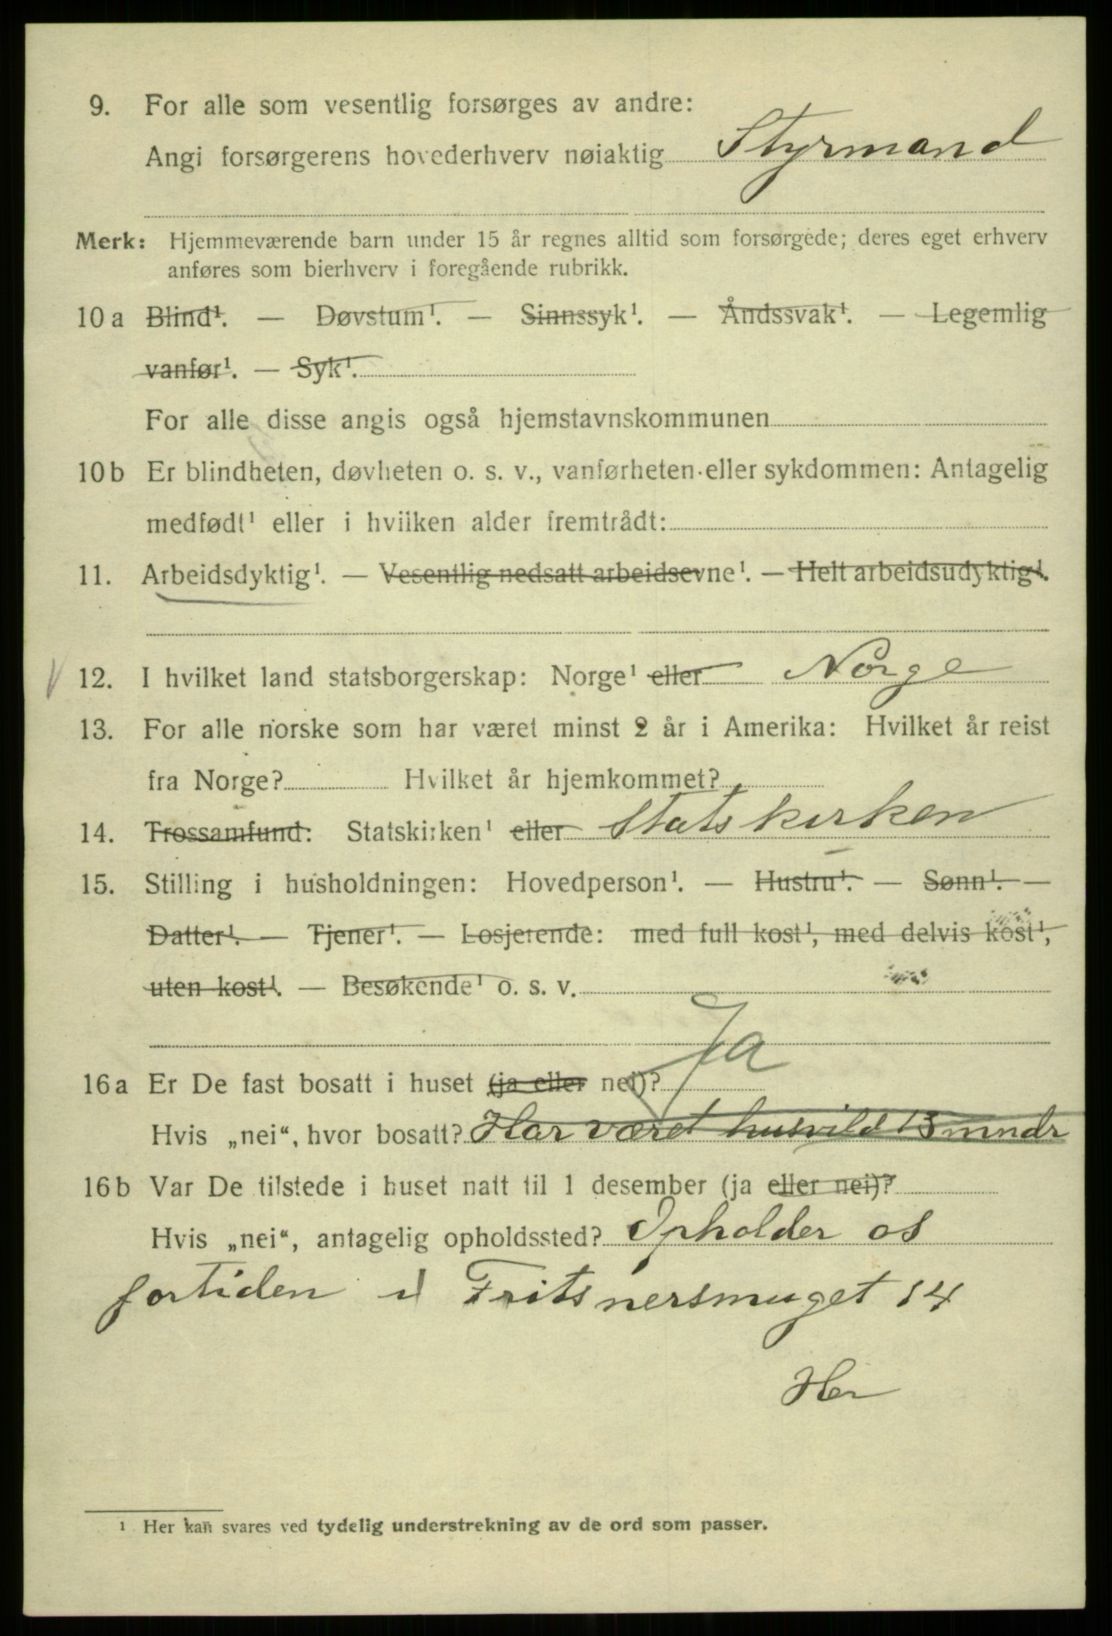 9. For alle som vesentlig forsørges av andre:
Angi forsørgerens hovederhverv nøiaktig Styrmand
Merk: Hjemmeværende barn under 15 år regnes alltid som forsørgede; deres eget erhverv
anføres som bierhverv i foregående rubrikk.
10 a Blind¹. — Døvstum¹. — Sinnssyk¹. — Åndssvak¹. — Legemlig
vanfør¹. — Syk¹.
For alle disse angis også hjemstavnskommunen
10 b Er blindheten, døvheten o. s. v., vanførheten eller sykdommen: Antagelig
medfødt¹ eller i hvilken alder fremtrådt:
11. Arbeidsdyktig¹. — Vesentlig nedsatt arbeidsevne¹. — Helt arbeidsudyktig¹.
12. I hvilket land statsborgerskap: Norge¹ eller Norge
13. For alle norske som har været minst 2 år i Amerika: Hvilket år reist
fra Norge? Hvilket år hjemkommet?
14. Trossamfund: Statskirken¹ eller Statskirken
15. Stilling i husholdningen: Hovedperson¹. — Hustru¹. — Sønn¹. —
Datter¹. — Tjener¹. — Losjerende: med full kost¹, med delvis kost¹,
uten kost¹. — Besøkende¹ o. s. v.
Ja
16 a Er De fast bosatt i huset (ja eller nei)?
Hvis „nei“, hvor bosatt? Har været husvild 13 mndr
16 b Var De tilstede i huset natt til 1 desember (ja eller nei)?
Hvis „nei“, antagelig opholdssted? Opholder os
fortiden i Fritsnersmuget 14
Her
¹ Her kan svares ved tydelig understrekning av de ord som passer.